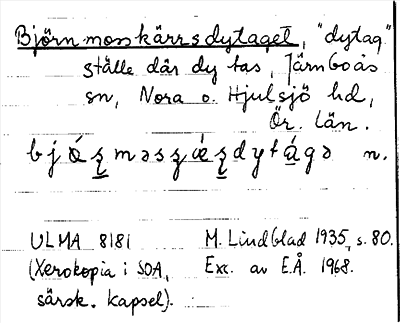 Björnmosskärrsdytaget, "dytag"
ställe där dy tas, Järnboås
sn, Nora o. Hjulsjö hd,
Ör. län.
n.
ULMA 8181 M. Lindblad 1935, s. 80.
(Xerokopia i SOA, Exc. av E.Å. 1968.
särsk. kapsel).